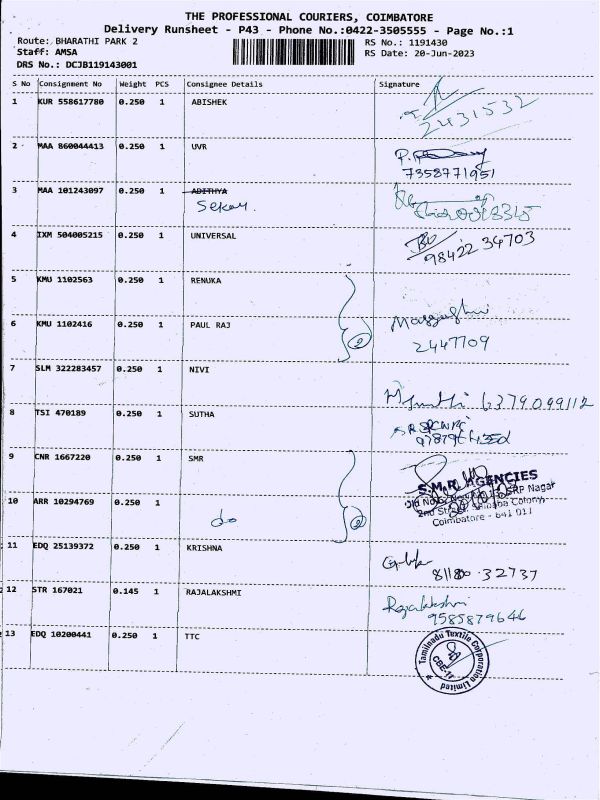 THE PROFESSIONAL COURIERS, COIMBATORE
Delivery Runsheet - P43 - Phone No.:0422-3505555 - Page No.:1
Route: BHARATHI PARK 2 RS No.: 1191430
Staff: AMSA RS Date: 20-Jun-2023
DRS No.: DCJB119143001
S No Consignment No Weight PCS Consignee Details Signature
1 KUR 558617780 0.250 1 ABISHEK
2431532
2 MAA 860044413 0.250 1 UVR
7358771951
3 MAA 101243097 0.250 1 ADITHYA
Sekar.
4 IXM 504005215 0.250 1 UNIVERSAL
98422 34703
5 KMU 1102563 0.250 1 RENUKA
6 KMU 1102416 0.250 1 PAUL RAJ
2
2447709
7 SLM 322283457 0.250 1 NIVI
6379099112
8 TSI 470189 0.250 1 SUTHA
9 CNR 1667220 0.250 1 SMR
S.M.R. AGENCIES
SRP Nagar
10 ARR 10294769 0.250 1
2nd Saibaba Colony,
do 2
Coimbatore - 641 011
11 EDQ 25139372 0.250 1 KRISHNA
81180 32737
12 STR 167021 0.145 1 RAJALAKSHMI
Rajalakshmi
9585879646
13 EDQ 10200441 0.250 1 TTC
Tamilnadu Textile Corporation Limited
CBE-11